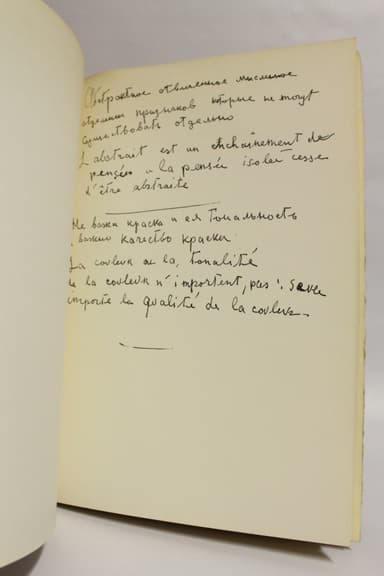 Абстрактное отвлеченное мысленное
отделение признаков которые не могут
существовать отдельно
L'abstrait est un enchaînement de
pensées la pensée isolée cesse
d'être abstraite
Не важна краска и ея тональность
важно качество краски
La couleur ou la tonalité
de la couleur n'importent, pas. Seule
importe la qualité de la couleur.